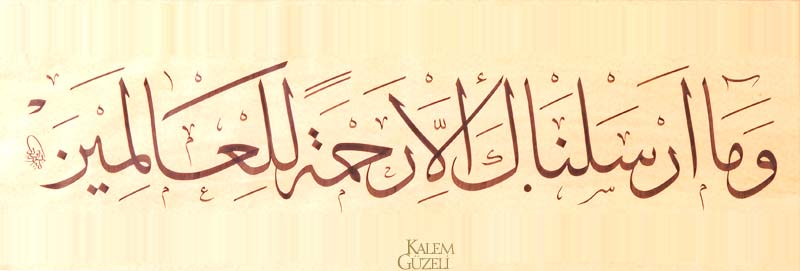 وَمَا أَرْسَلْنَاكَ إِلَّا رَحْمَةً لِلْعَالَمِينَ
KALEM
GÜZELİ